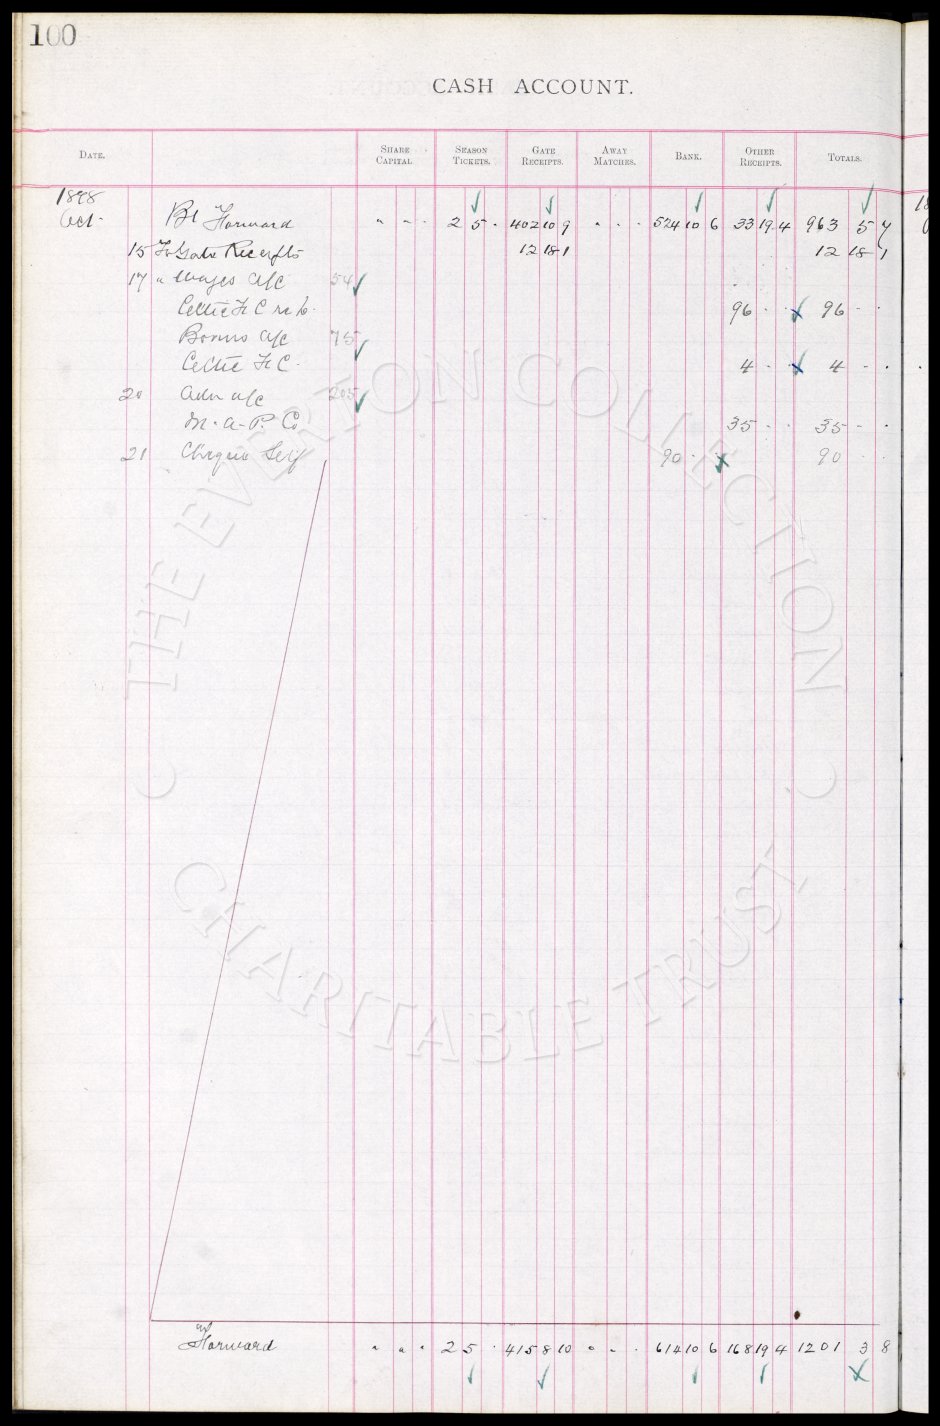 100
CASH ACCOUNT.
DATE. SHARE CAPITAL SEASON TICKETS. GATE RECEIPTS. AWAY MATCHES. BANK. OTHER RECEIPTS. TOTALS.
1898
Oct. Bt Forward " " " 2 5 . 402 10 9 " " " 524 10 6 33 19 4 963 5 7
15 To Gate Receipts 12 18 1 12 18 1
17 " Wages a/c 54
Celtic F C 96 . . 96 . .
Bonus a/c 75
Celtic F C. 4 . . 4 . .
20 Adv a/c 205
M. a. P. Co 35 . . 35 . .
21 Cheque Self 90 . . 90 . .
Forward " " " 2 5 . 415 8 10 " " " 614 10 6 168 19 4 1201 3 8
THE EVERTON COLLECTION
CHARITABLE TRUST